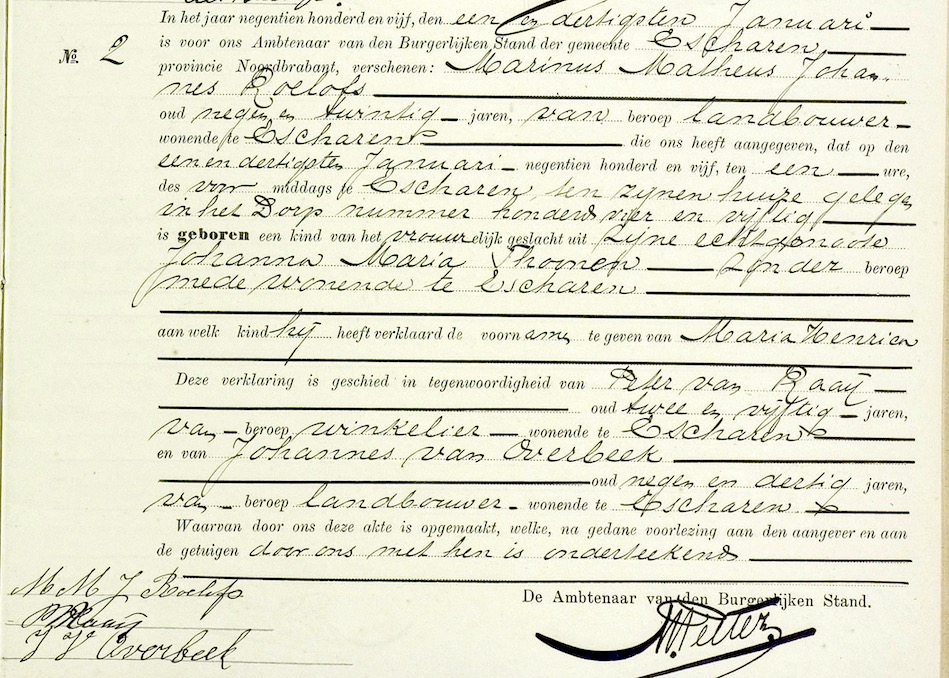 In het jaar negentien honderd en vijf, den een en dertigsten Januari
is voor ons Ambtenaar van den Burgerlijken Stand der gemeente Escharen,
№. 2 provincie Noordbrabant, verschenen: Marinus Matheus Johan-
nes Roelofs
oud negen en twintig jaren, van beroep landbouwer
wonende te Escharen die ons heeft aangegeven, dat op den
een en dertigsten Januari negentien honderd en vijf, ten een ure,
des voor middags te Escharen, ten zijnen huize gelegen
in het Dorp nummer honderd vier en vijftig
is geboren een kind van het vrouwelijk geslacht uit zijne echtgenoote
Johanna Maria Thoonen zonder beroep
mede wonende te Escharen
aan welk kind hij heeft verklaard de voornamen te geven van Maria Henrica
Deze verklaring is geschied in tegenwoordigheid van Peter van Raaij
oud twee en vijftig jaren,
van beroep winkelier wonende te Escharen
en van Johannes van Overbeek
oud negen en dertig jaren,
van beroep landbouwer wonende te Escharen
Waarvan door ons deze akte is opgemaakt, welke, na gedane voorlezing aan den aangever en aan
de getuigen door ons met hen is onderteekend
De Ambtenaar van den Burgerlijken Stand.
M M J Roelofs
Raaij
J V Overbeek